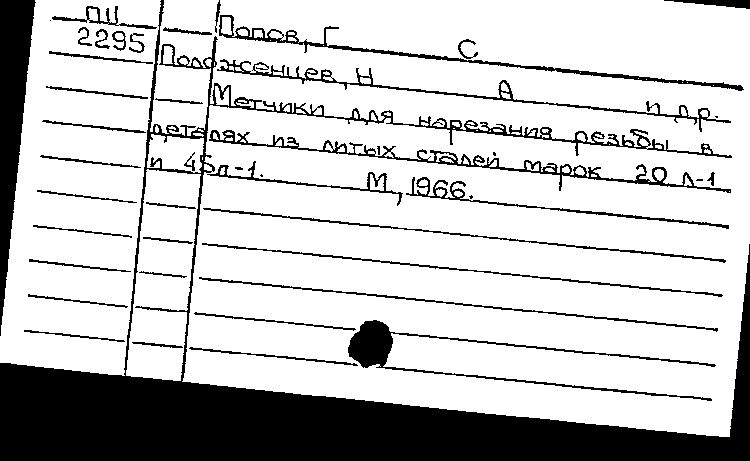 П11
2295
Попов, Г С
Положенцев, Н А и др.
Метчики для нарезания резьбы в
деталях из литых сталей марок 20 Л-1
и 45л-1. М, 1966.